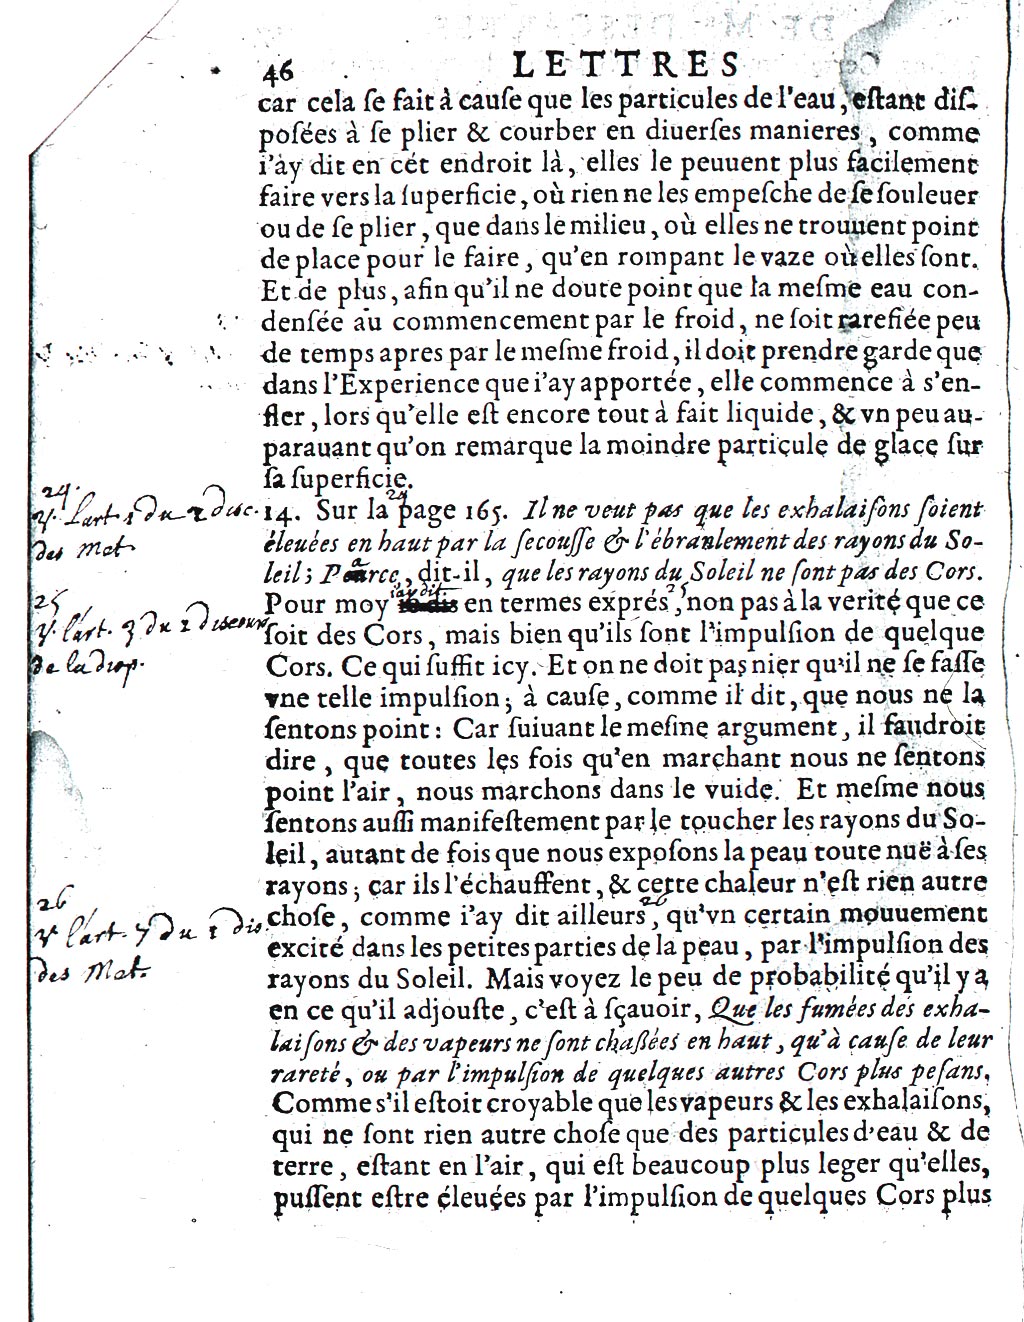 46 LETTRES
car cela ſe fait à cauſe que les particules de l'eau, eſtant diſ-
poſées à ſe plier & courber en diuerſes manieres, comme
i'ay dit en cét endroit là, elles le peuuent plus facilement
faire vers la ſuperficie, où rien ne les empeſche de ſe ſouleuer
ou de ſe plier, que dans le milieu, où elles ne trouuent point
de place pour le faire, qu'en rompant le vaze où elles ſont.
Et de plus, afin qu'il ne doute point que la meſme eau con-
denſée au commencement par le froid, ne ſoit rarefiée peu
de temps apres par le meſme froid, il doit prendre garde que
dans l'Experience que i'ay apportée, elle commence à s'en-
fler, lors qu'elle eſt encore tout à fait liquide, & vn peu au-
parauant qu'on remarque la moindre particule de glace ſur
ſa ſuperficie.
24.
24
y. l'art 1 du 2 disc.
des Met.
14. Sur la page 165. Il ne veut pas que les exhalaiſons ſoient
éleuées en haut par la ſecouſſe & l'ébranlement des rayons du So-
leil; Parce, dit-il, que les rayons du Soleil ne ſont pas des Cors.
25
y. l'art. 3 du 2 discours
de la diop.
i'ay dit
25
Pour moy en termes exprés, non pas à la verité que ce
ſoit des Cors, mais bien qu'ils ſont l'impulſion de quelque
Cors. Ce qui ſuffit icy. Et on ne doit pas nier qu'il ne ſe faſſe
vne telle impulſion; à cauſe, comme il dit, que nous ne la
ſentons point: Car ſuiuant le meſme argument, il faudroit
dire, que toutes les fois qu'en marchant nous ne ſentons
point l'air, nous marchons dans le vuide. Et meſme nous
ſentons auſſi manifeſtement par le toucher les rayons du So-
leil, autant de fois que nous expoſons la peau toute nuë à ſes
rayons; car ils l'échauffent, & cette chaleur n'eſt rien autre
26
26
y l'art. 7 du 1 dis.
des Met.
choſe, comme i'ay dit ailleurs, qu'vn certain mouuement
excité dans les petites parties de la peau, par l'impulſion des
rayons du Soleil. Mais voyez le peu de probabilité qu'il y a
en ce qu'il adjouſte, c'eſt à ſçauoir, Que les fumées des exha-
laiſons & des vapeurs ne ſont chaßées en haut, qu'à cauſe de leur
rareté, ou par l'impulſion de quelques autres Cors plus peſans.
Comme s'il eſtoit croyable que les vapeurs & les exhalaiſons,
qui ne ſont rien autre choſe que des particules d'eau & de
terre, eſtant en l'air, qui eſt beaucoup plus leger qu'elles,
puſſent eſtre éleuées par l'impulſion de quelques Cors plus